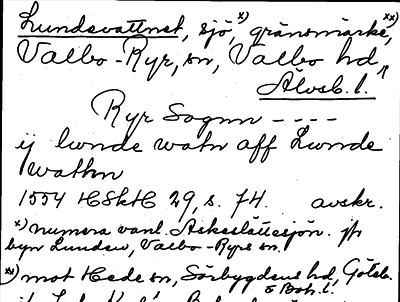 Lundsvattnet, sjö,x) gränsmärke,xx)
Valbo-Ryr, sn, Valbo hd,
Älvsb. l.
Ryr Sognn ----
ij lunde watn aff Lunde
wathn
1554 HSkH 29, s. 74. avskr.
x) numera vanl. Askeslättesjön. jfr
byn Lunden, Valbo-Ryrs sn.
xx) mot Hede sn, Sörbygdens hd, Göteb.
o Boh. l.